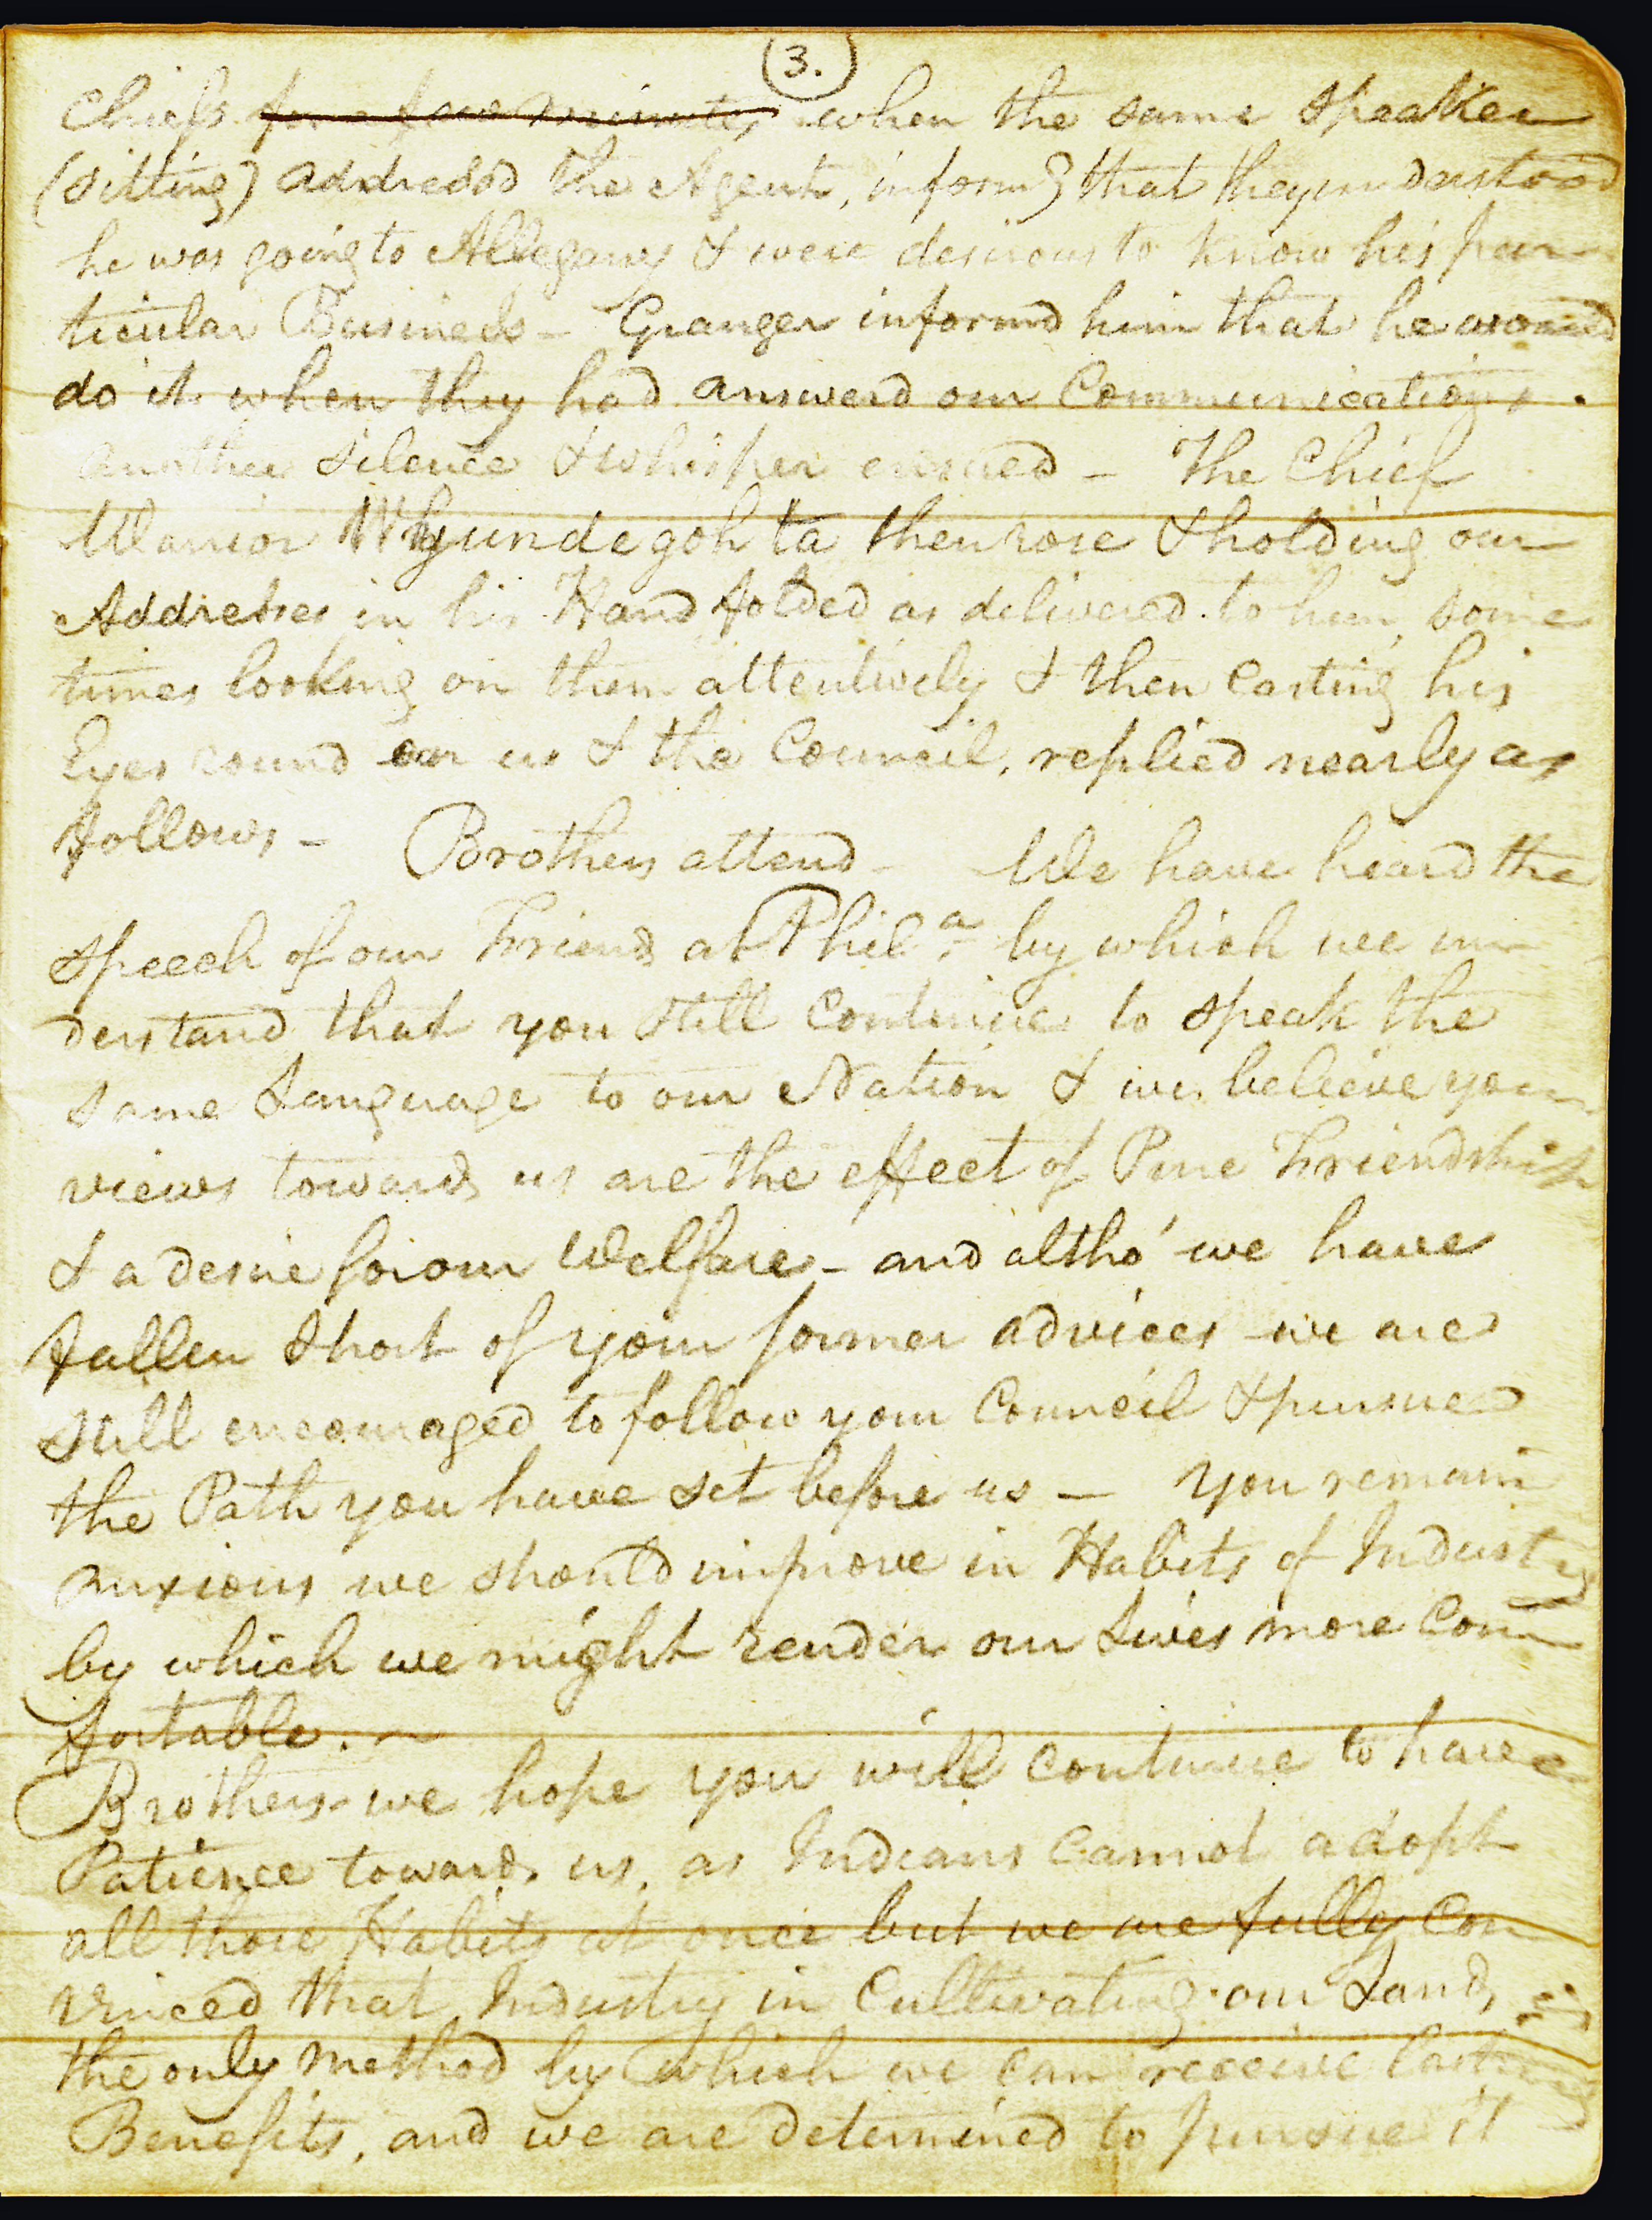 (3.)
Chiefs for a few minutes when the same Speaker
(sitting) addressd the Agent, informg that they understood
he was going to Allegany & were desirous to know his par
ticular Business - Granger informd him that he would
do it when they had answerd our Communications.
another silence & whisper ensued - The Chief
Warrior Whyundegohta then rose & holding our
Addresses in his Hand folded as delivered to him, some
times looking on them attentively & then casting his
Eyes round on us & the Council, replied nearly as
follows - Brothers attend - We have heard the
Speech of our Friends at Phila. by which we un
derstand that you still Continue to speak the
same Language to our Nation & we believe your
views towards us are the effect of Pure Friendship
& a desire for our Welfare - and altho' we have
fallen Short of your former advices we are
still encouraged to follow your Council & pursue
the Path you have set before us — You remain
anxious we should improve in Habits of Industry
by which we might render our Lives more Com
fortable. ~
Brothers we hope you will continue to have
Patience towards us, as Indians Cannot adopt
all those Habits at once but we are fully Con
vinced that Industry in Cultivating our Lands is
the only method by which we can receive lasting
Benefits, and we are determined to pursue it